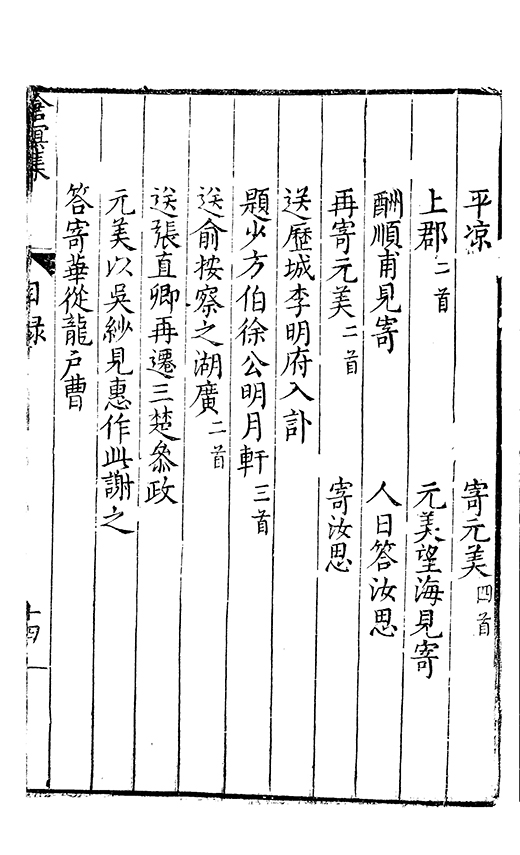 平凉　寄元美四首
上郡二首　元美望海見寄
酬順甫見寄　人日答汝思
再寄元美二首　寄汝思
送歷城李明府入計
題少方伯徐公明月軒三首
送俞按察之湖廣二首
送張直卿再遷三楚叅政
元美以吳紗見惠作此謝之
答寄華從龍戶曹
滄溟集　目録　十四